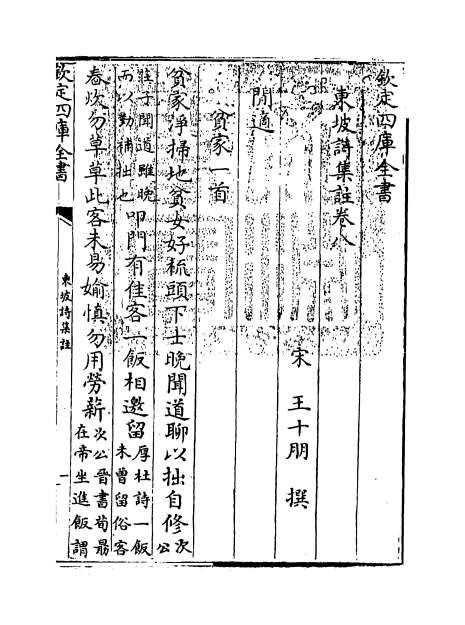 欽定四庫全書
東坡詩集註卷八
宋 王十朋 撰
閒適
貧家一首
貧家淨掃地貧女好梳頭下士晚聞道聊以拙自修次公
莊子聞道雖晚而以勤補拙也叩門有佳客一飯相邀留厚杜詩一飯未曾留俗客
舂炊勿草草此客未易媮慎勿用勞薪次公晉書荀勗在帝坐進飯謂
欽定四庫全書
東坡詩集註
一